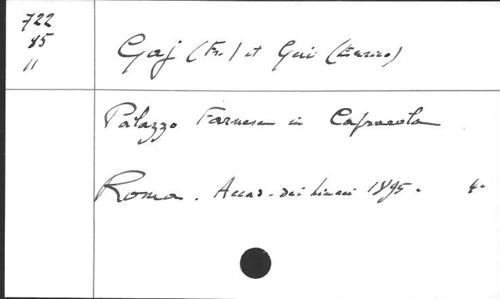 722
85
11
Gaj (Fr.) et Gui (Enrico)
Palazzo Farnese in Caprarola
Roma. Accad. dei Lincei 1895. 4°